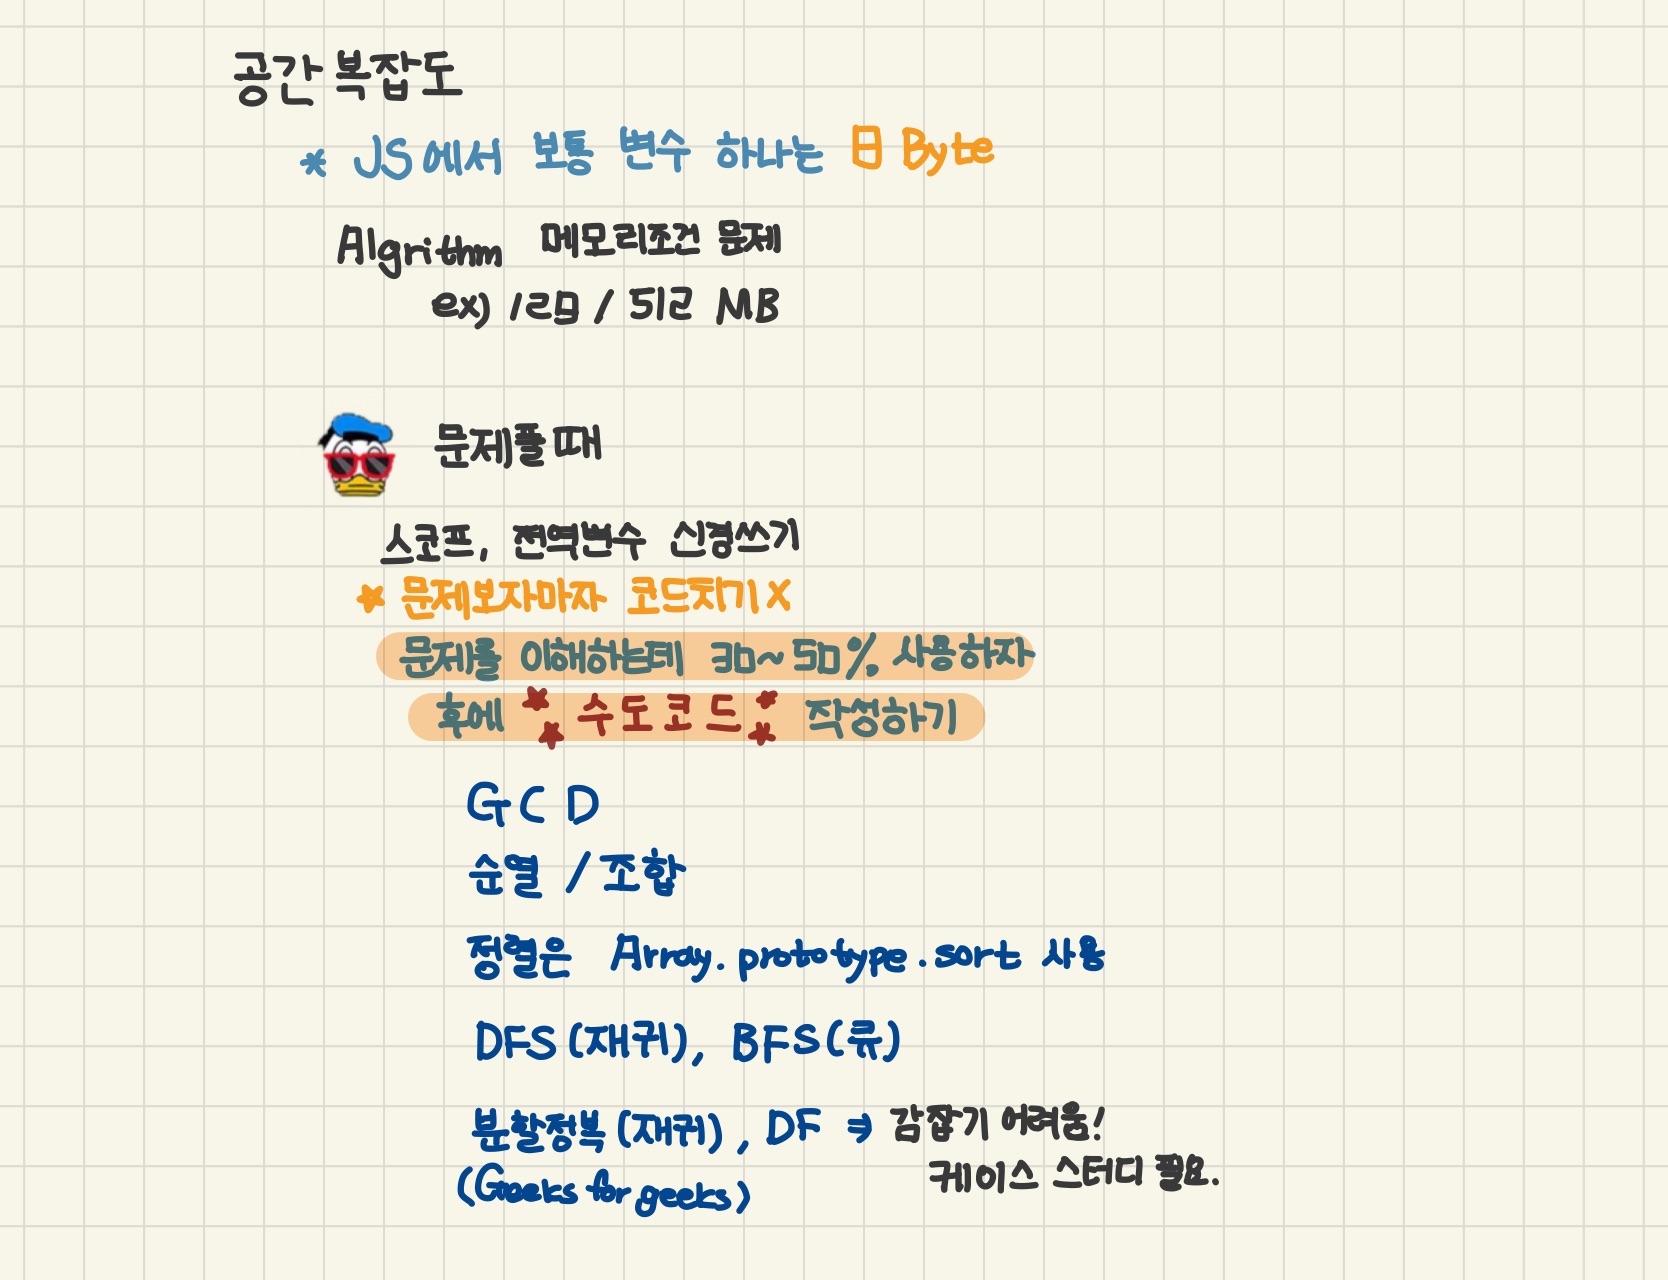 공간 복잡도
* JS에서 보통 변수 하나는 8 Byte
Algrithm 메모리조건 문제
ex) 128 / 512 MB
문제풀때
스코프, 전역변수 신경쓰기
* 문제보자마자 코드치기 X
문제를 이해하는데 30~50% 사용하자
후에 수도코드 작성하기
GCD
순열 / 조합
정렬은 Array.prototype.sort 사용
DFS (재귀), BFS (큐)
분할정복 (재귀), DF ⇒ 감잡기 어려움!
(Geeks for geeks) 케이스 스터디 필요.